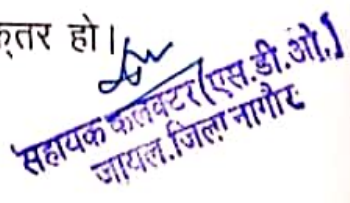 क्तर हो।
सहायक कलक्टर (एस.डी.ओ.)
जायल.जिला नागौर